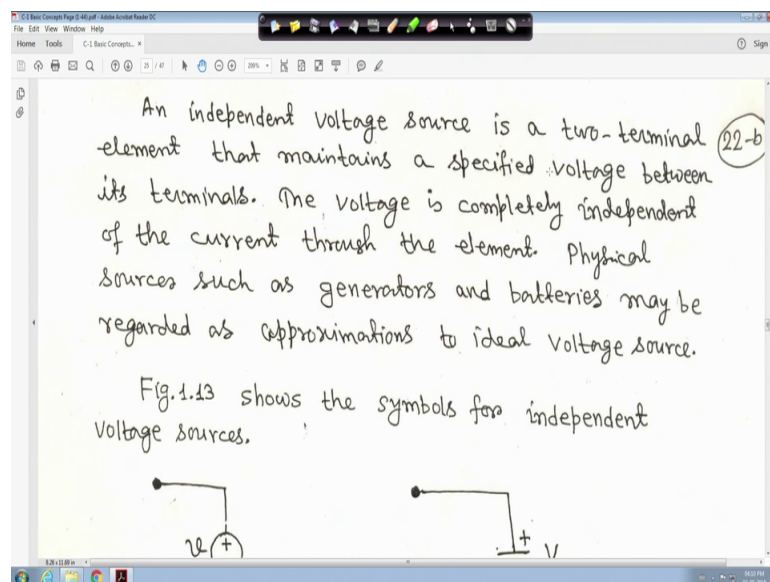 C-1 Basic Concepts Page (1-44).pdf - Adobe Acrobat Reader DC
File Edit View Window Help
Home Tools C-1 Basic Concepts... × Sign
25 / 47 200%
An independent voltage source is a two-terminal
element that maintains a specified voltage between
its terminals. The voltage is completely independent
of the current through the element. Physical
sources such as generators and batteries may be
regarded as approximations to ideal voltage source.
22-b
Fig. 1.13 shows the symbols for independent
voltage sources.
v + + V
8.28 x 11.69 in